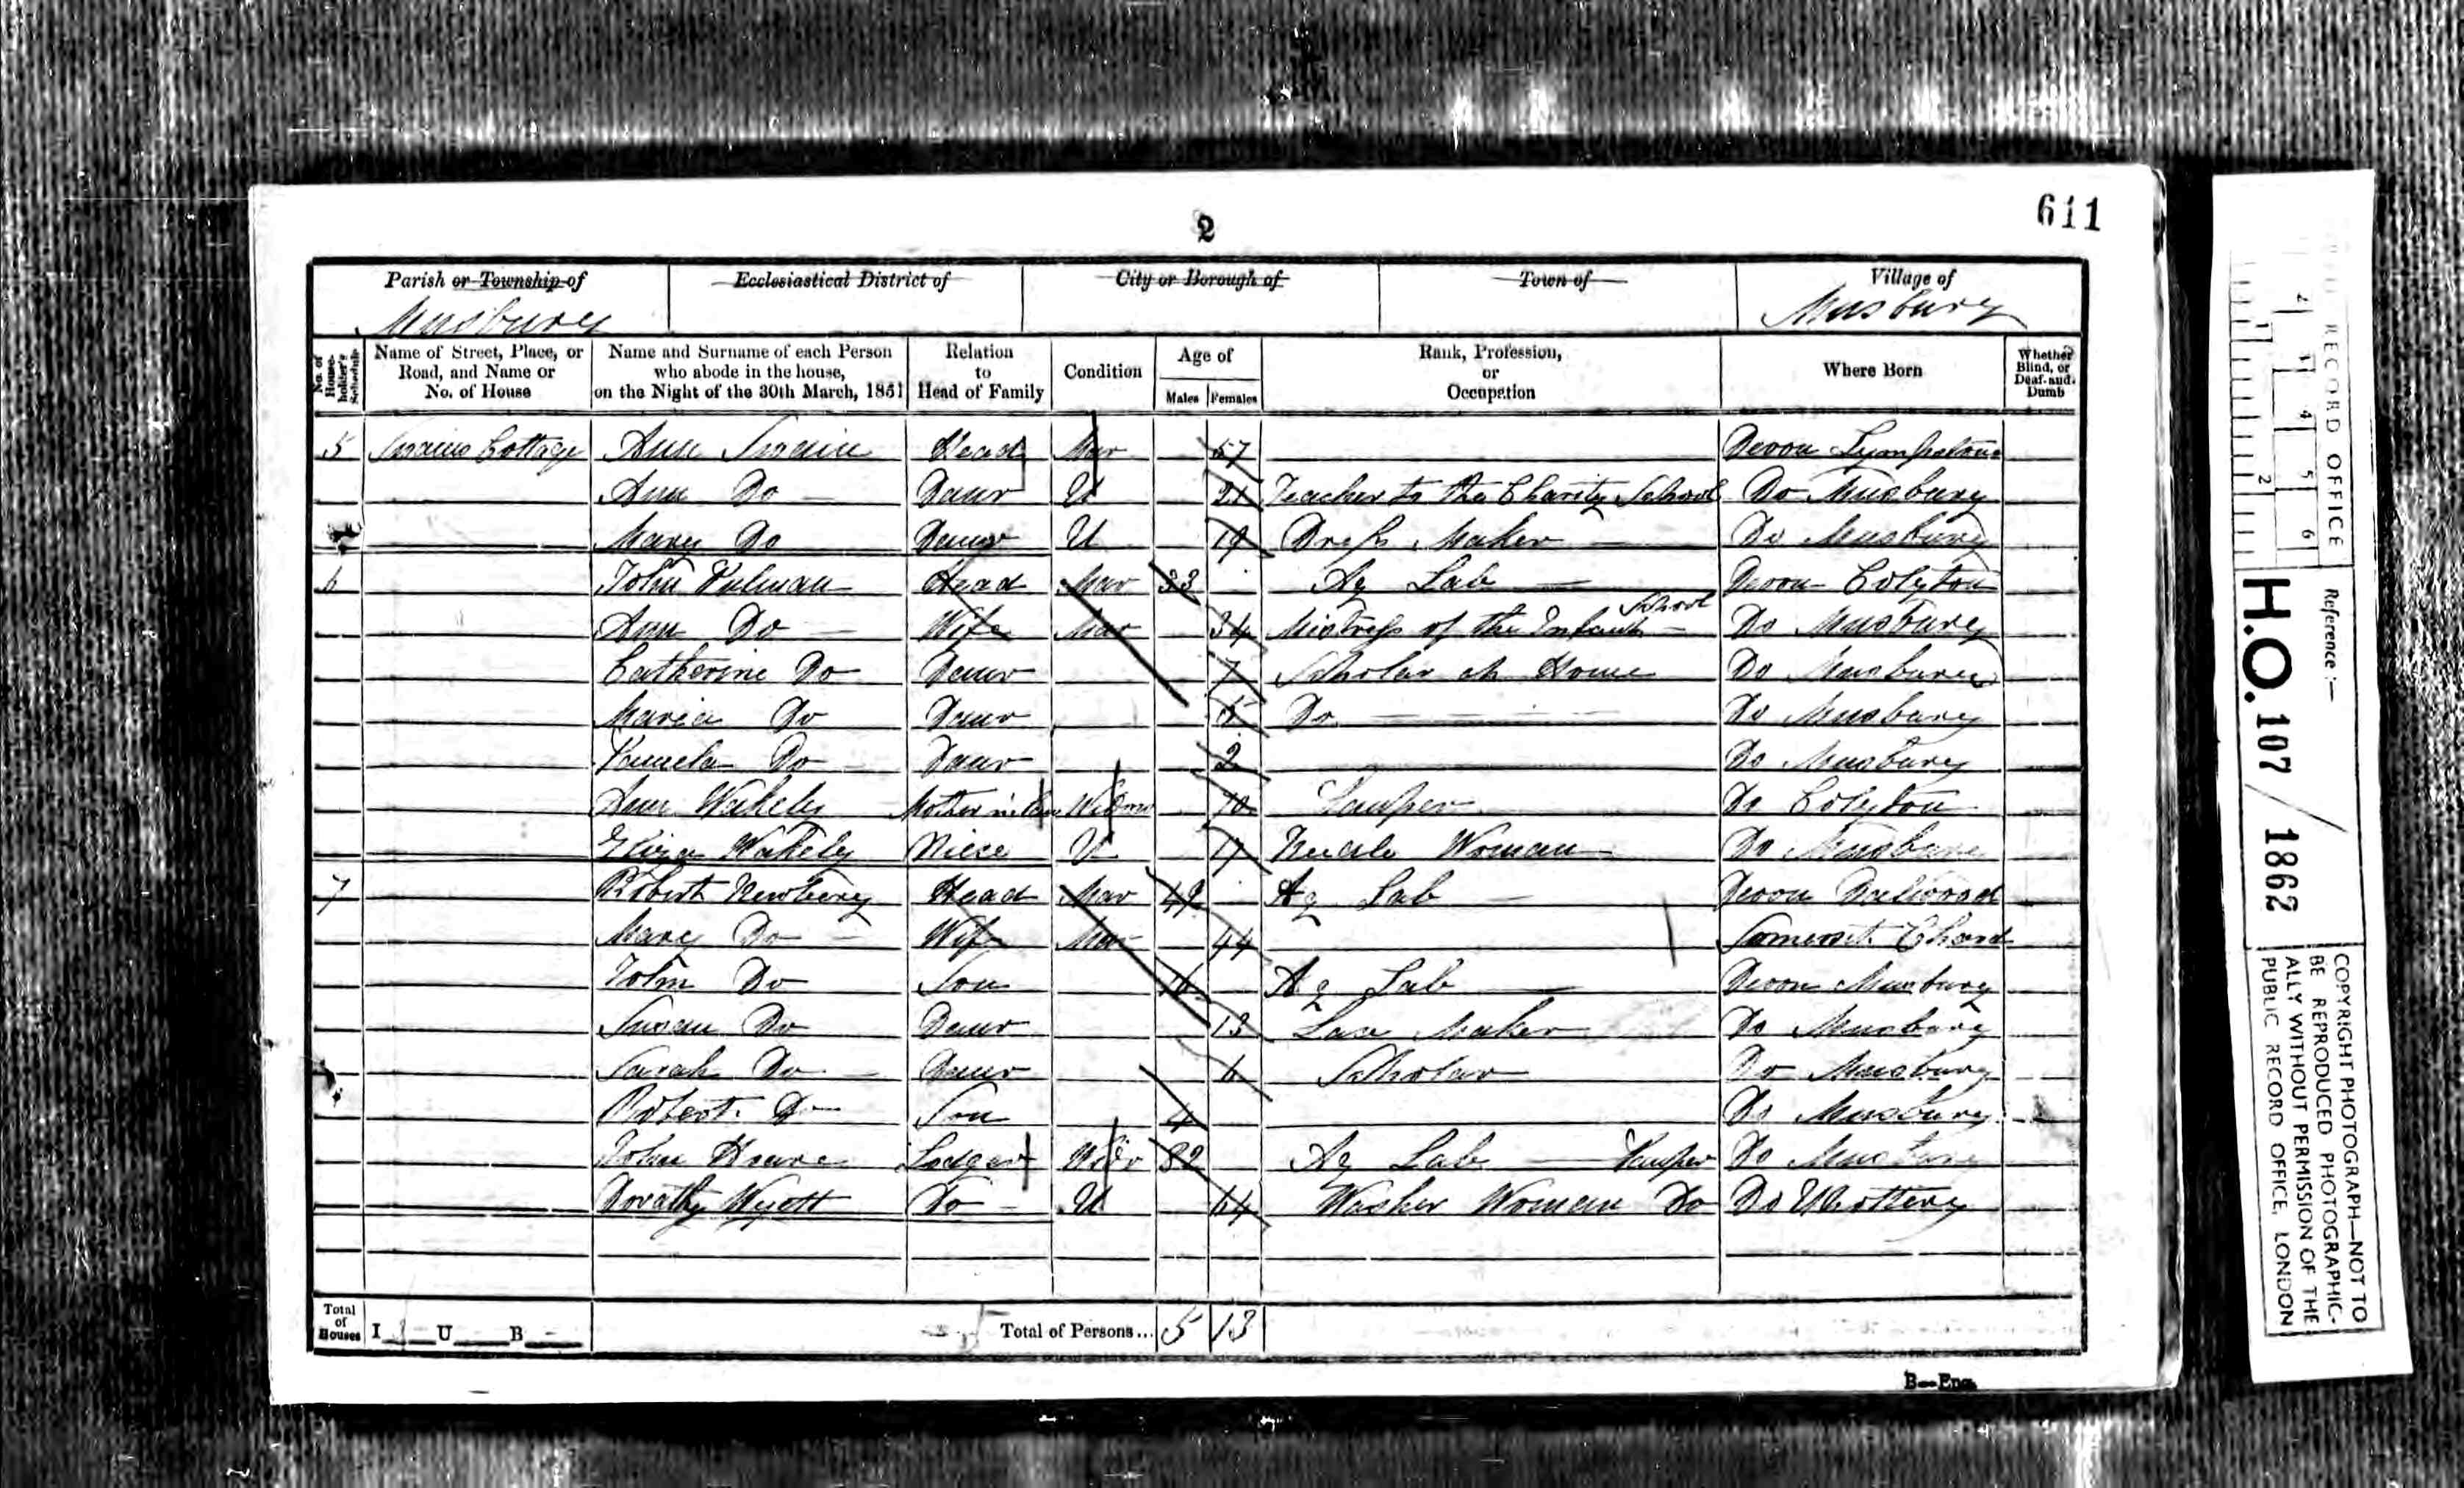 2
611
Parish or Township of
Musbury
Ecclesiastical District of
City or Borough of
Town of
Village of
Musbury
No. of House-holder's Schedule
Name of Street, Place, or Road, and Name or No. of House
Name and Surname of each Person who abode in the house, on the Night of the 30th March, 1851
Relation to Head of Family
Condition
Age of
Males Females
Rank, Profession, or Occupation
Where Born
Whether Blind, or Deaf-and-Dumb
5 Swains Cottage Ann Swain Head Mar 57 Devon Lympstone
Ann Do Daur U 21 Teacher to the Charity School Do Musbury
Mary Do Daur U 19 Dress Maker Do Musbury
6 John Pulman Head Mar 33 Ag Lab Devon Colyton
Ann Do Wife Mar 34 Mistress of the Infant School Do Musbury
Catherine Do Daur 7 Scholar at Home Do Musbury
Maria Do Daur 5 Do Do Musbury
Do Daur 2 Do Musbury
Ann Wakely Mother in law Widow 70 Pauper Do Colyton
Eliza Wakely Niece U 17 Needle Woman Do Musbury
7 Robert Newbery Head Mar 42 Ag Lab Devon Dalwood
Mary Do Wife Mar 44 Somerset Chard
John Do Son 16 Ag Lab Devon Musbury
Susan Do Daur 13 Lace Maker Do Musbury
Sarah Do Daur 6 Scholar Do Musbury
Robert Do Son 4 Do Musbury
John Hoare Lodger Widr 82 Ag Lab Pauper Do Musbury
Dorathy Wyott Do U 64 Washer Woman Do Do
Total of Houses I 3 U B
Total of Persons... 5 13
B—Eng.
RECORD OFFICE
1 2 4 5 6
2
Reference :—
H.O. 107 / 1862
COPYRIGHT PHOTOGRAPH—NOT TO
BE REPRODUCED PHOTOGRAPHIC-
ALLY WITHOUT PERMISSION OF THE
PUBLIC RECORD OFFICE, LONDON